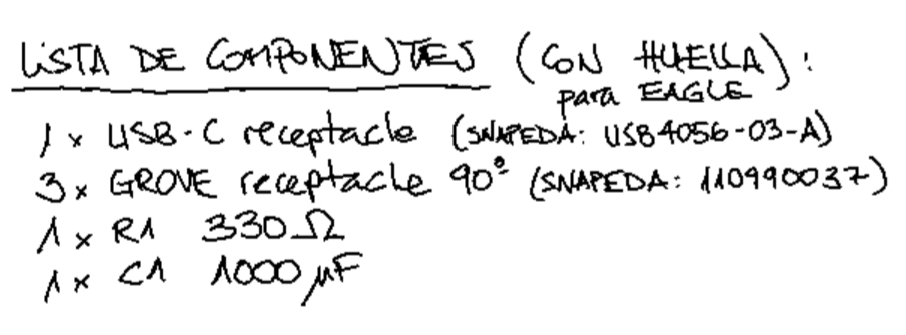 LISTA DE COMPONENTES (CON HUELLA):
para EAGLE
1 x USB-C receptacle (SNAPEDA: USB4056-03-A)
3 x GROVE receptacle 90° (SNAPEDA: 110990037)
1 x R1 330 Ω
1 x C1 1000 µF